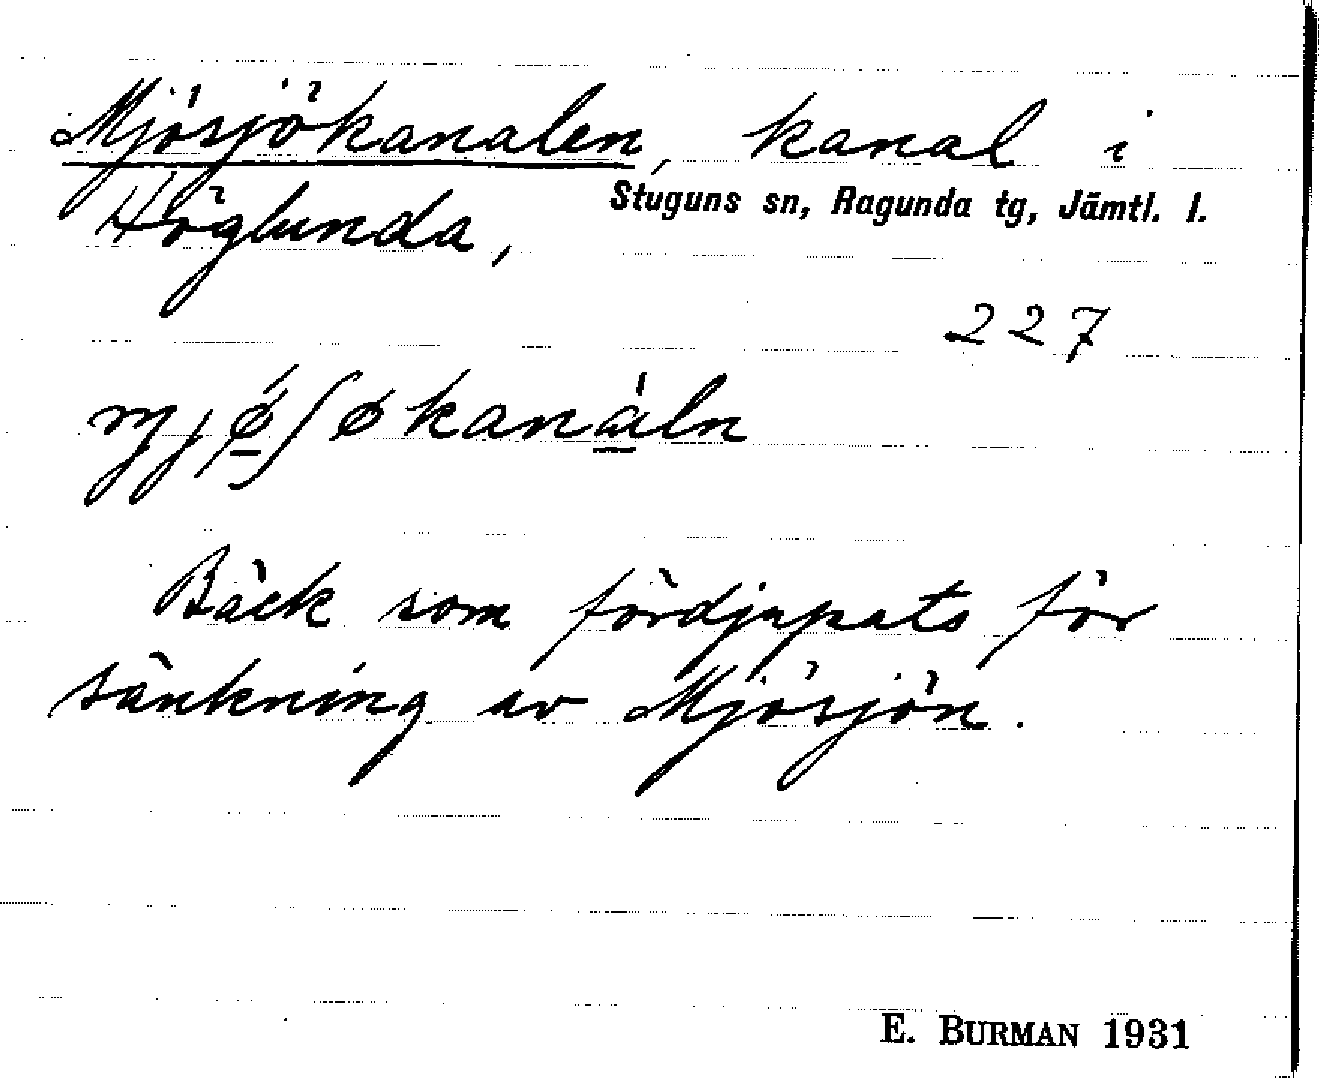 Mjösjökanalen, kanal i
Höglunda, Stuguns sn, Ragunda tg, Jämtl. l.
227
mjǿ̲ʃøkaná̲ln
Bäck som fördjupats för
sänkning av Mjösjön.
E. BURMAN 1931